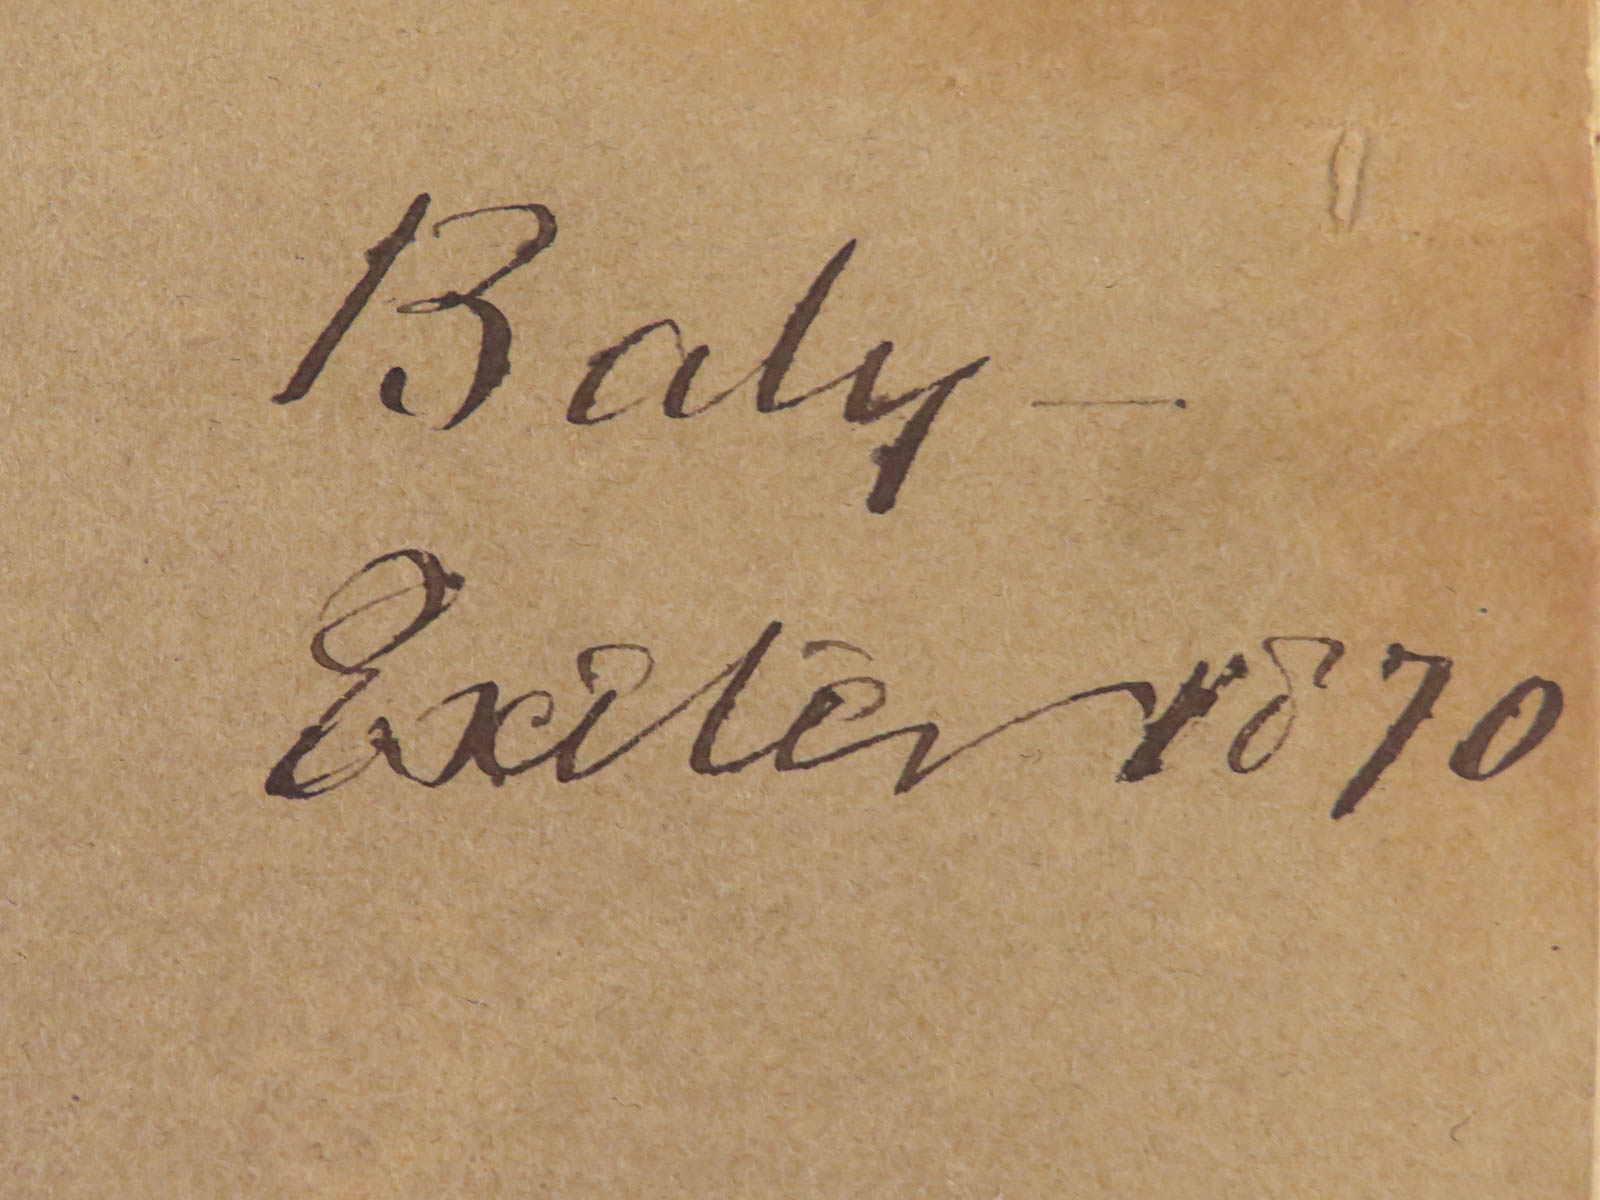 Baly —
Exeter 1870